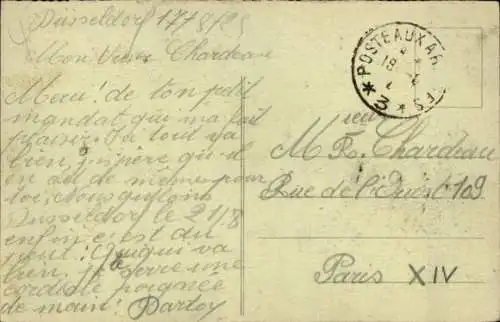 Düsseldorf 17/8/25
Mon vieux Chardeau
Merci! de ton petit
mandat qui m'a fait
plaisir. Ici tout va
bien j'espère qu'il
en est de même pour
toi. Nous quittons
Dusseldorf le 21/8
enfin c'est du
peut: Quiqui va
bien. je te serre une
cordiale poignée
de main: Dardoy
* POSTE AUX AR
3 *
M R. Chardeau
Rue de l'Ouest 109
Paris XIV